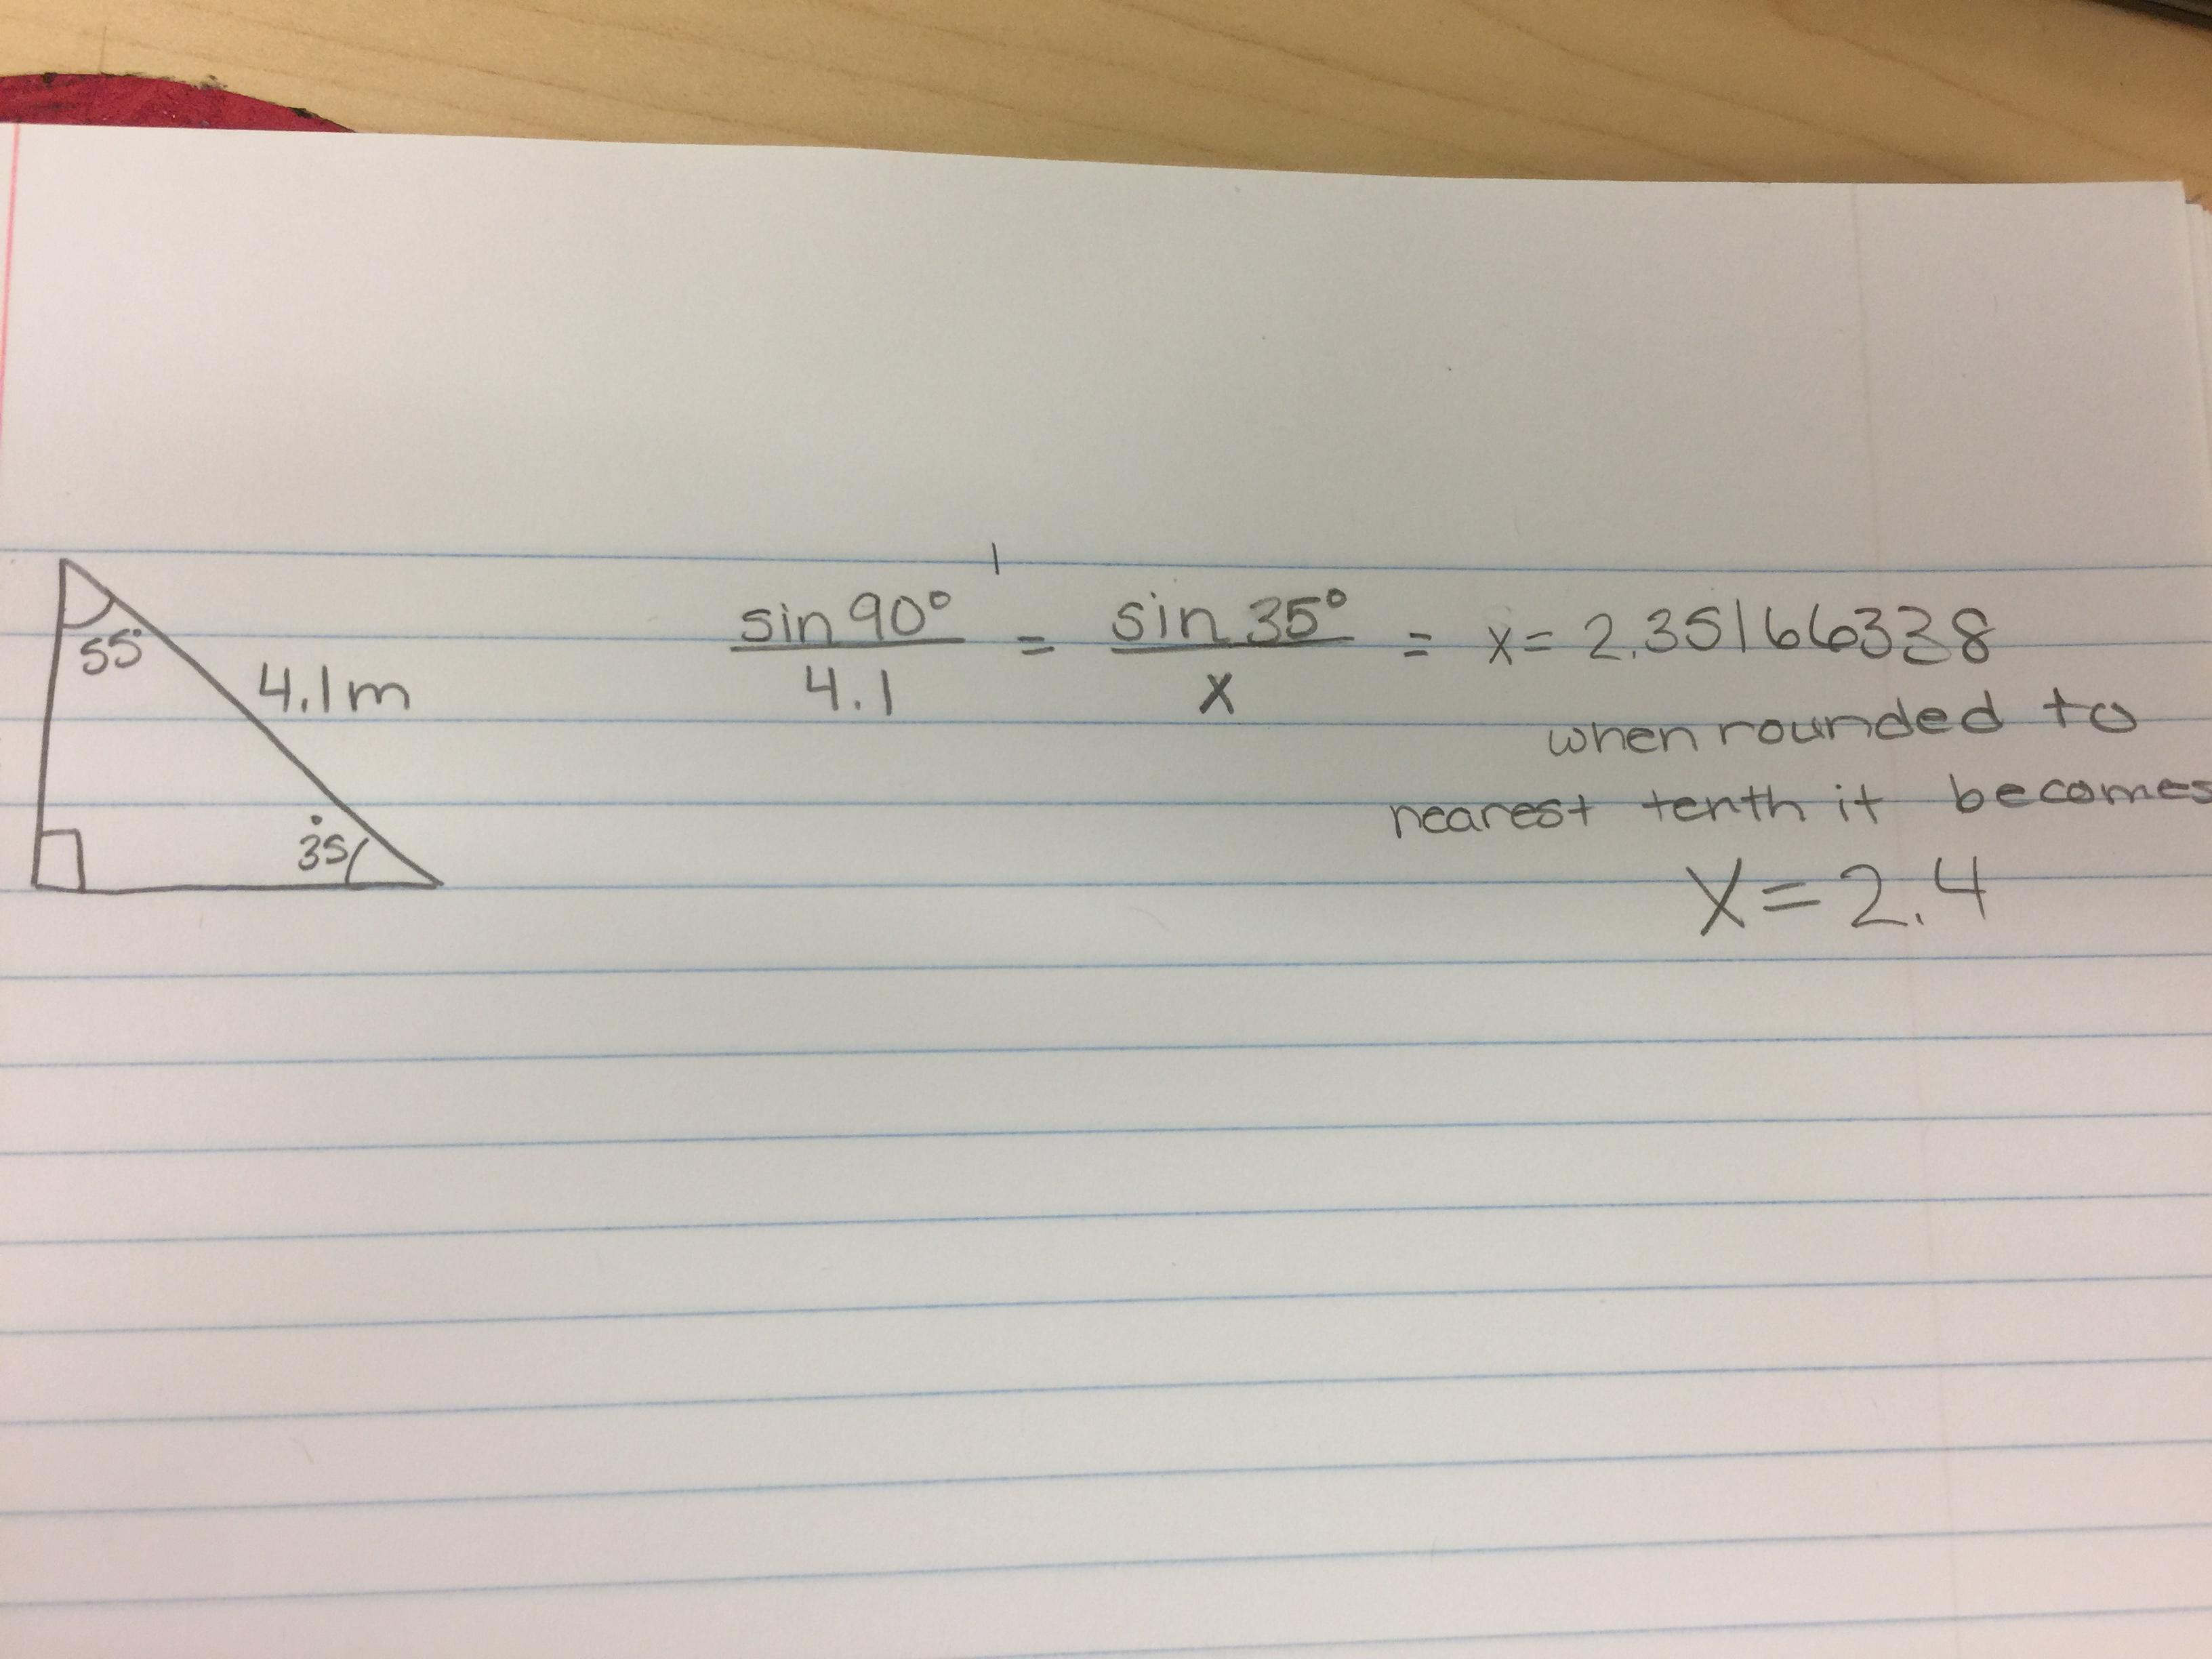 55°
4.1m
35°
sin 90° / 4.1 = sin 35° / x = x = 2.35166338
when rounded to
nearest tenth it becomes
x = 2.4